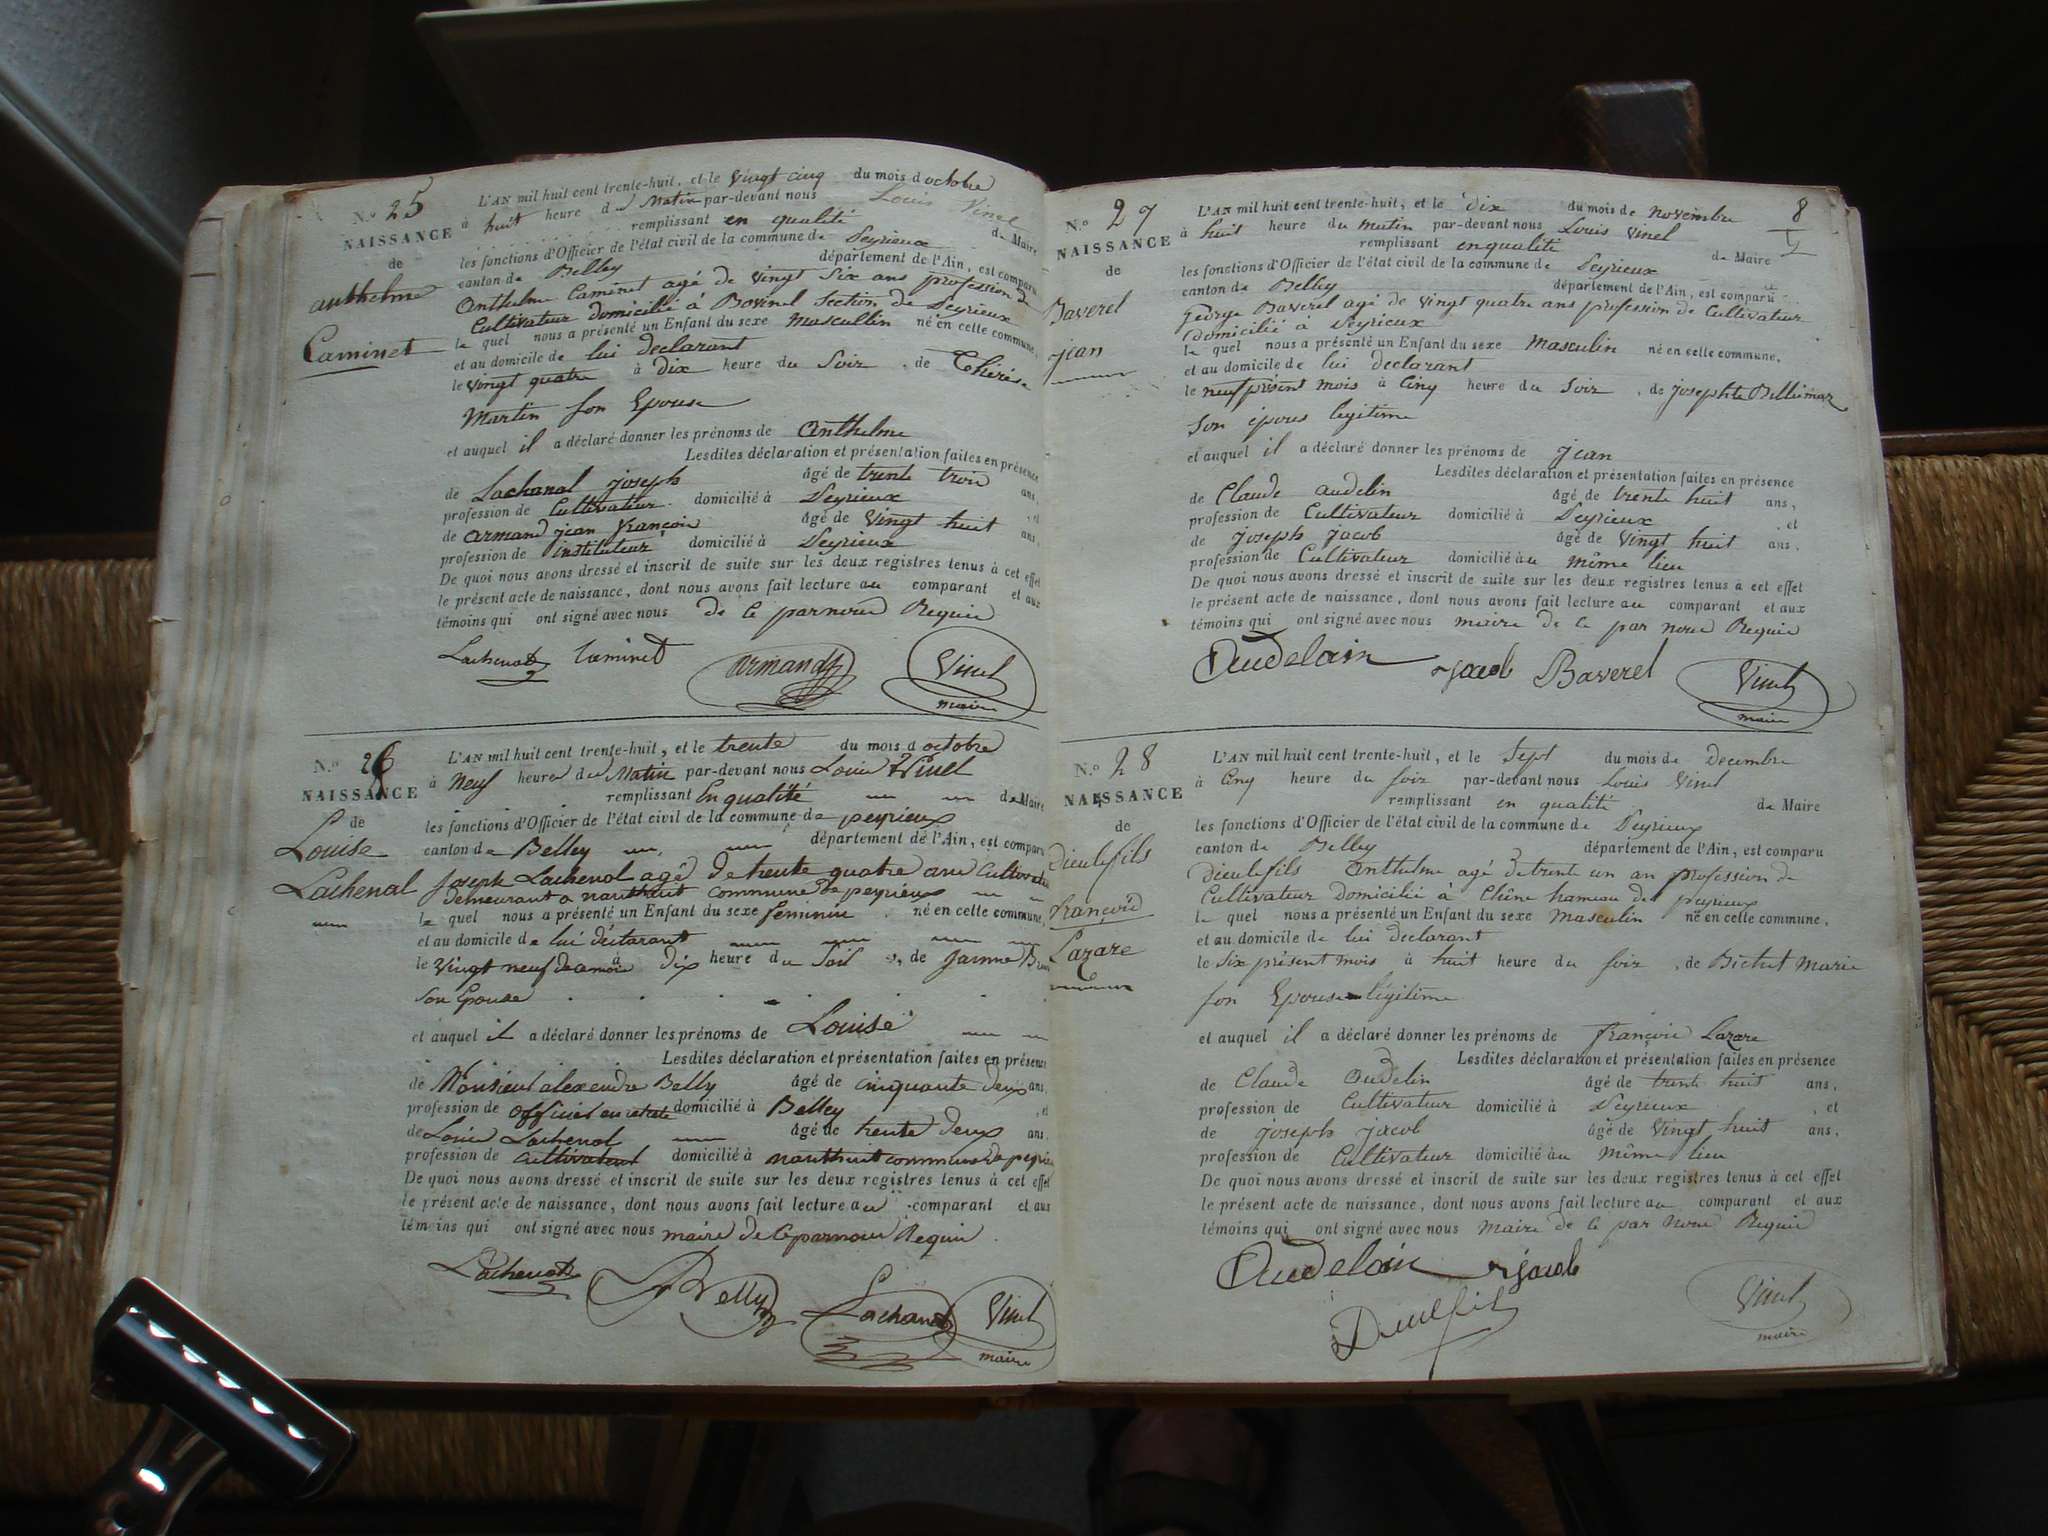 N.º 25
NAISSANCE
de
anthelme
Caminet
L'AN mil huit cent trente-huit, et le vingt cinq du mois d octobre
à huit heure du Matin par-devant nous Louis Vinel
remplissant en qualité de Maire
les fonctions d'Officier de l'état civil de la commune de Peyrieux
canton de Belley département de l'Ain, est comparu
Anthelme Caminet agé de vingt Six ans profession de
Cultivateur domicilié à Bovinel Section de Peyrieux
le quel nous a présenté un Enfant du sexe Mascullin né en cette commune,
et au domicile de lui declarant
le vingt quatre à dix heure du Soir , de Thérèse
Martin son Epouse
et auquel il a déclaré donner les prénoms de Anthelme
Lesdites déclaration et présentation faites en présence
de Lachanal joseph âgé de trente trois ans,
profession de Cultivateur domicilié à Peyrieux , et
de armand jean françois âgé de vingt huit ans,
profession de instituteur domicilié à Peyrieux
De quoi nous avons dressé et inscrit de suite sur les deux registres tenus à cet effet
le présent acte de naissance, dont nous avons fait lecture au comparant et aux
témoins qui ont signé avec nous de ce par nous Requis
Lachenal Caminet armand Vinel
maire
N.º 26
NAISSANCE
de
Louise
Lachenal
L'AN mil huit cent trente-huit, et le trente du mois d octobre
à Neuf heures du Matin par-devant nous Louis Vinel
remplissant En qualité de Maire
les fonctions d'Officier de l'état civil de la commune de peyrieux
canton de Belley département de l'Ain, est comparu
joseph Lachenal agé de trente quatre ans Cultivateur
demeurant a nanthuit commune de peyrieux
le quel nous a présenté un Enfant du sexe féminin né en cette commune,
et au domicile de lui déclarant
le vingt neuf de ce mois à dix heure du Soir , de Jeanne
Son Epouse
et auquel il a déclaré donner les prénoms de Louise
Lesdites déclaration et présentation faites en présence
de Monsieur alexendre Belly âgé de cinquante deux ans,
profession de officier en retrete domicilié à Belley , et
de Louis Lachenal âgé de trente deux ans,
profession de Cultivateur domicilié à nanthuit commune de peyrieux
De quoi nous avons dressé et inscrit de suite sur les deux registres tenus à cet effet
le présent acte de naissance, dont nous avons fait lecture au comparant et aux
témoins qui ont signé avec nous maire de ce par nous Requis
Lachenal Belly Lachanal Vinel
maire
8
N.º 27
NAISSANCE
de
Baverel
jean
L'AN mil huit cent trente-huit, et le dix du mois de novembre
à huit heure du matin par-devant nous Louis Vinel
remplissant en qualité de Maire
les fonctions d'Officier de l'état civil de la commune de Peyrieux
canton de Belley département de l'Ain, est comparu
George Baverel agé de vingt quatre ans profession de Cultivateur
domicilié à Peyrieux
le quel nous a présenté un Enfant du sexe Masculin né en cette commune,
et au domicile de lui declarant
le neuf présent mois à Cinq heure du Soir , de josephte Billiemaz
Son épouse legitime
et auquel il a déclaré donner les prénoms de jean
Lesdites déclaration et présentation faites en présence
de Claude audelin âgé de trente huit ans,
profession de Cultivateur domicilié à Peyrieux , et
de joseph jacob âgé de vingt huit ans,
profession de Cultivateur domicilié au même lieu
De quoi nous avons dressé et inscrit de suite sur les deux registres tenus à cet effet
le présent acte de naissance, dont nous avons fait lecture au comparant et aux
témoins qui ont signé avec nous maire de ce par nous Requis
Audelain jacob Baverel Vinel
maire
N.º 28
NAISSANCE
de
dieulefils
françois
Lazare
L'AN mil huit cent trente-huit, et le Sept du mois de Decembre
à Cinq heure du soir par-devant nous Louis Vinel
remplissant en qualité de Maire
les fonctions d'Officier de l'état civil de la commune de Peyrieux
canton de Belley département de l'Ain, est comparu
dieulefils Anthelme agé de trent un an profession de
Cultivateur domicilié à Chêne hameau de peyrieux
le quel nous a présenté un Enfant du sexe Masculin né en cette commune,
et au domicile de lui declarant
le Six présent mois à huit heure du soir , de Bichet Marie
son Epouse légitime
et auquel il a déclaré donner les prénoms de françois Lazare
Lesdites déclaration et présentation faites en présence
de Claude Audelin âgé de trente huit ans,
profession de Cultivateur domicilié à Peyrieux , et
de joseph jacob âgé de vingt huit ans,
profession de Cultivateur domicilié au même lieu
De quoi nous avons dressé et inscrit de suite sur les deux registres tenus à cet effet
le présent acte de naissance, dont nous avons fait lecture au comparant et aux
témoins qui ont signé avec nous maire de ce par nous Requis
Audelain jacob Vinel
maire